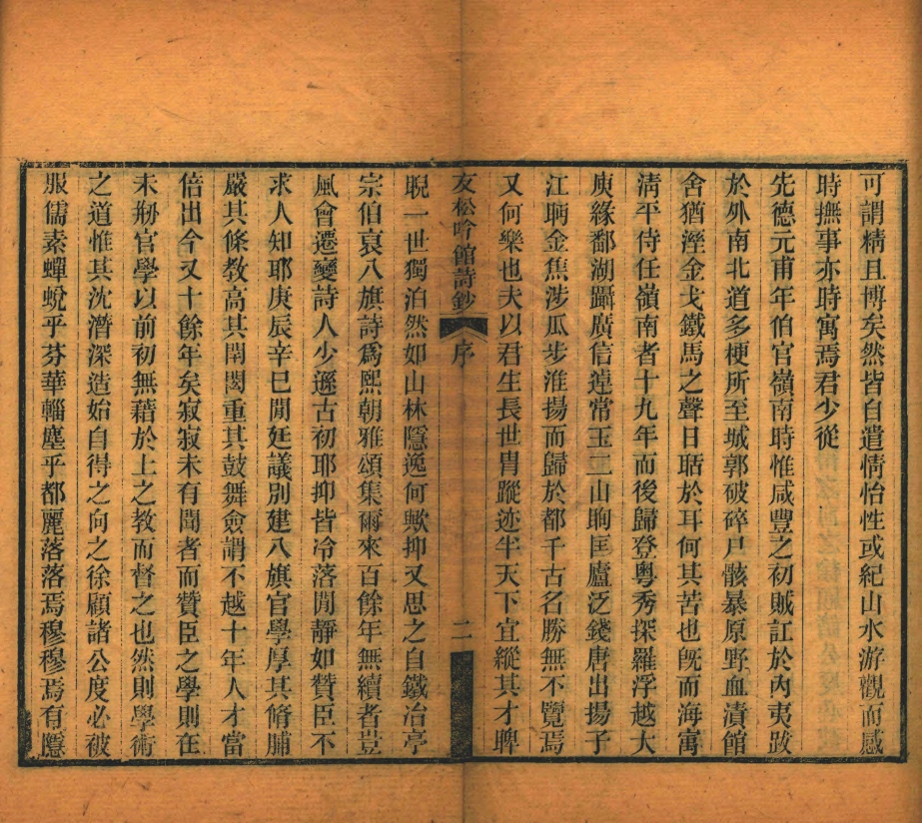 可謂精且博矣然皆自遣情怡性或紀山水游觀而感
時撫事亦時寓焉君少從
先德元甫年伯官嶺南時惟咸豐之初賊訌於內夷跋
於外南北道多梗所至城郭破碎尸骸暴原野血漬館
舍猶溼金戈鐵馬之聲日聒於耳何其苦也旣而海寓
淸平侍任嶺南者十九年而後歸登粵秀探羅浮越大
庾緣鄱湖躡廣信逴常玉二山眴匡廬泛錢唐出揚子
江眄金焦涉瓜步淮揚而歸於都千古名勝無不覽焉
又何樂也夫以君生長世胄蹤迹半天下宜縱其才睥
友松吟館詩鈔 序 二
睨一世獨泊然如山林隱逸何歟抑又思之自鐵冶亭
宗伯裒八旗詩爲熙朝雅頌集爾來百餘年無續者豈
風會遷變詩人少遜古初耶抑皆冷落閒靜如贊臣不
求人知耶庚辰辛巳閒廷議別建八旗官學厚其脩脯
嚴其條敎高其閈閎重其鼓舞僉謂不越十年人才當
倍出今又十餘年矣寂寂未有聞者而贊臣之學則在
未剏官學以前初無藉於上之教而督之也然則學術
之道惟其沈潛深造始自得之向之徐顧諸公度必被
服儒素蟬蛻乎芬華輜塵乎都麗落落焉穆穆焉有隱